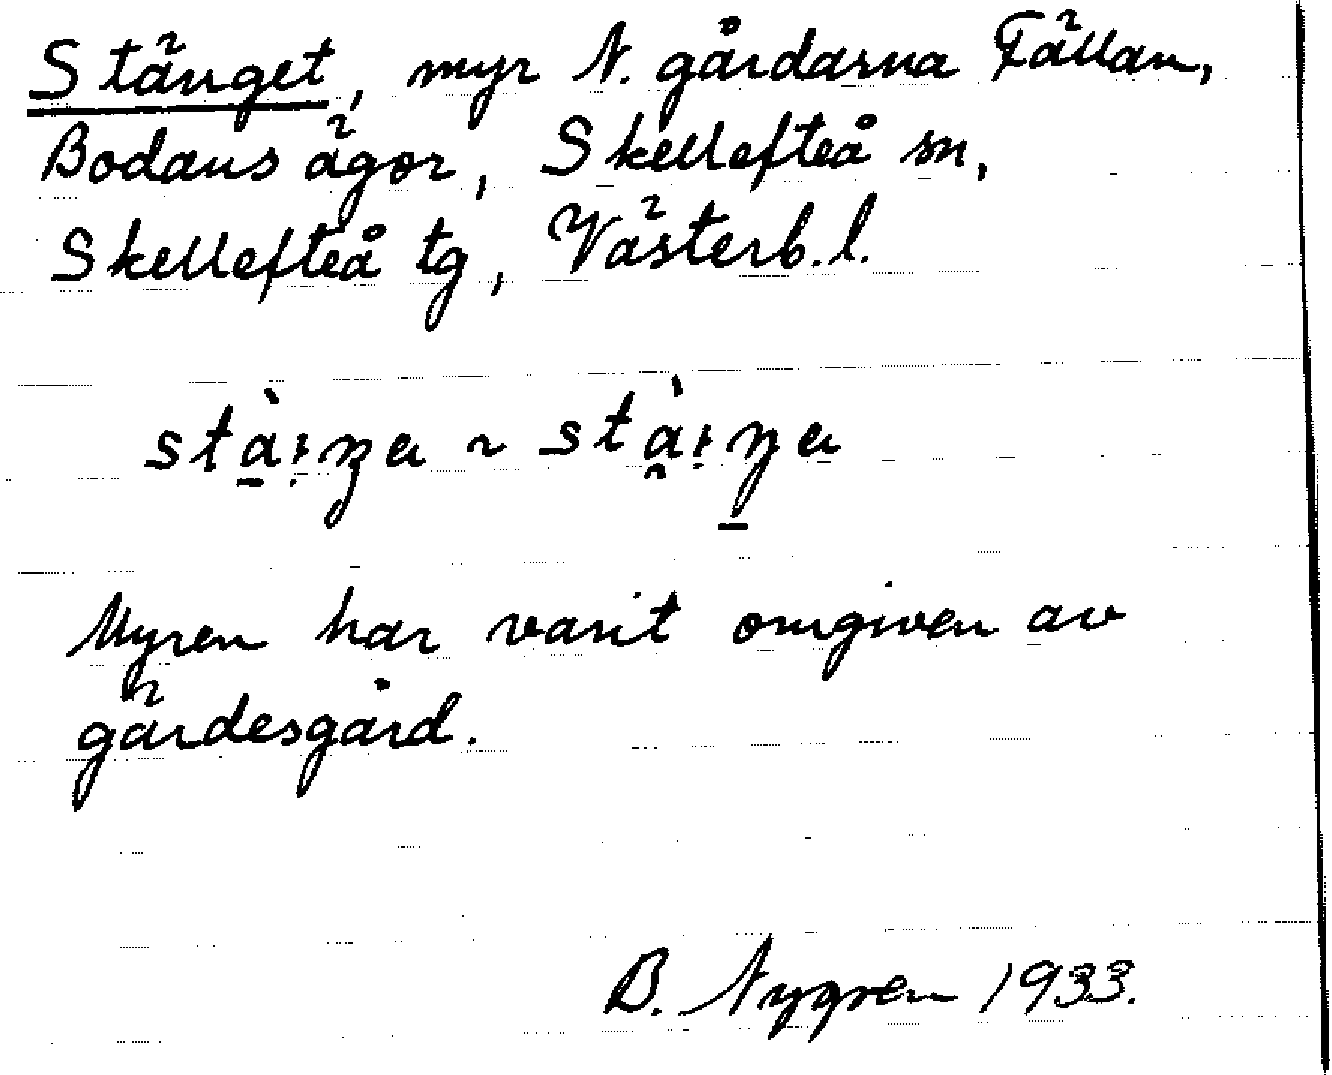 Stänget, myr N. gårdarna Fällan,
Bodans ägor, Skellefteå sn,
Skellefteå tg, Västerb. l.
Myren har varit omgiven av
gärdesgård.
B. Nygren 1933.